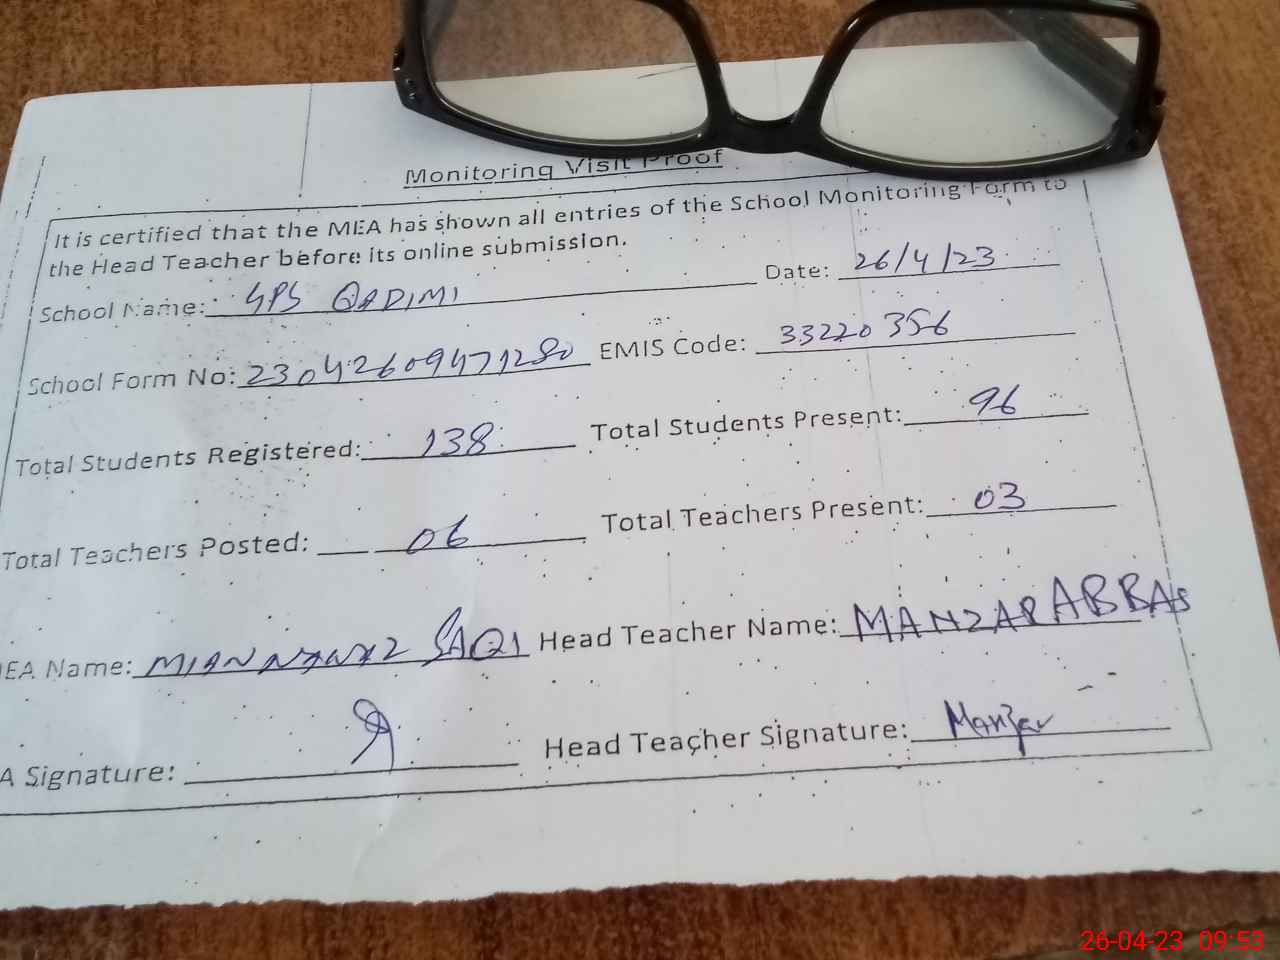 Monitoring Visit Proof
It is certified that the MEA has shown all entries of the School Monitoring Form to
the Head Teacher before its online submission.
School Name: GPS QADIMI Date: 26/4/23
School Form No: 23042609471280 EMIS Code: 33220356
Total Students Registered: 138 Total Students Present: 96
Total Teachers Posted: 06 Total Teachers Present: 03
EA Name: MIAN NAWAZ SAQI Head Teacher Name: MANZAR ABBAS
A Signature: Head Teacher Signature: Manzar
26-04-23 09:53